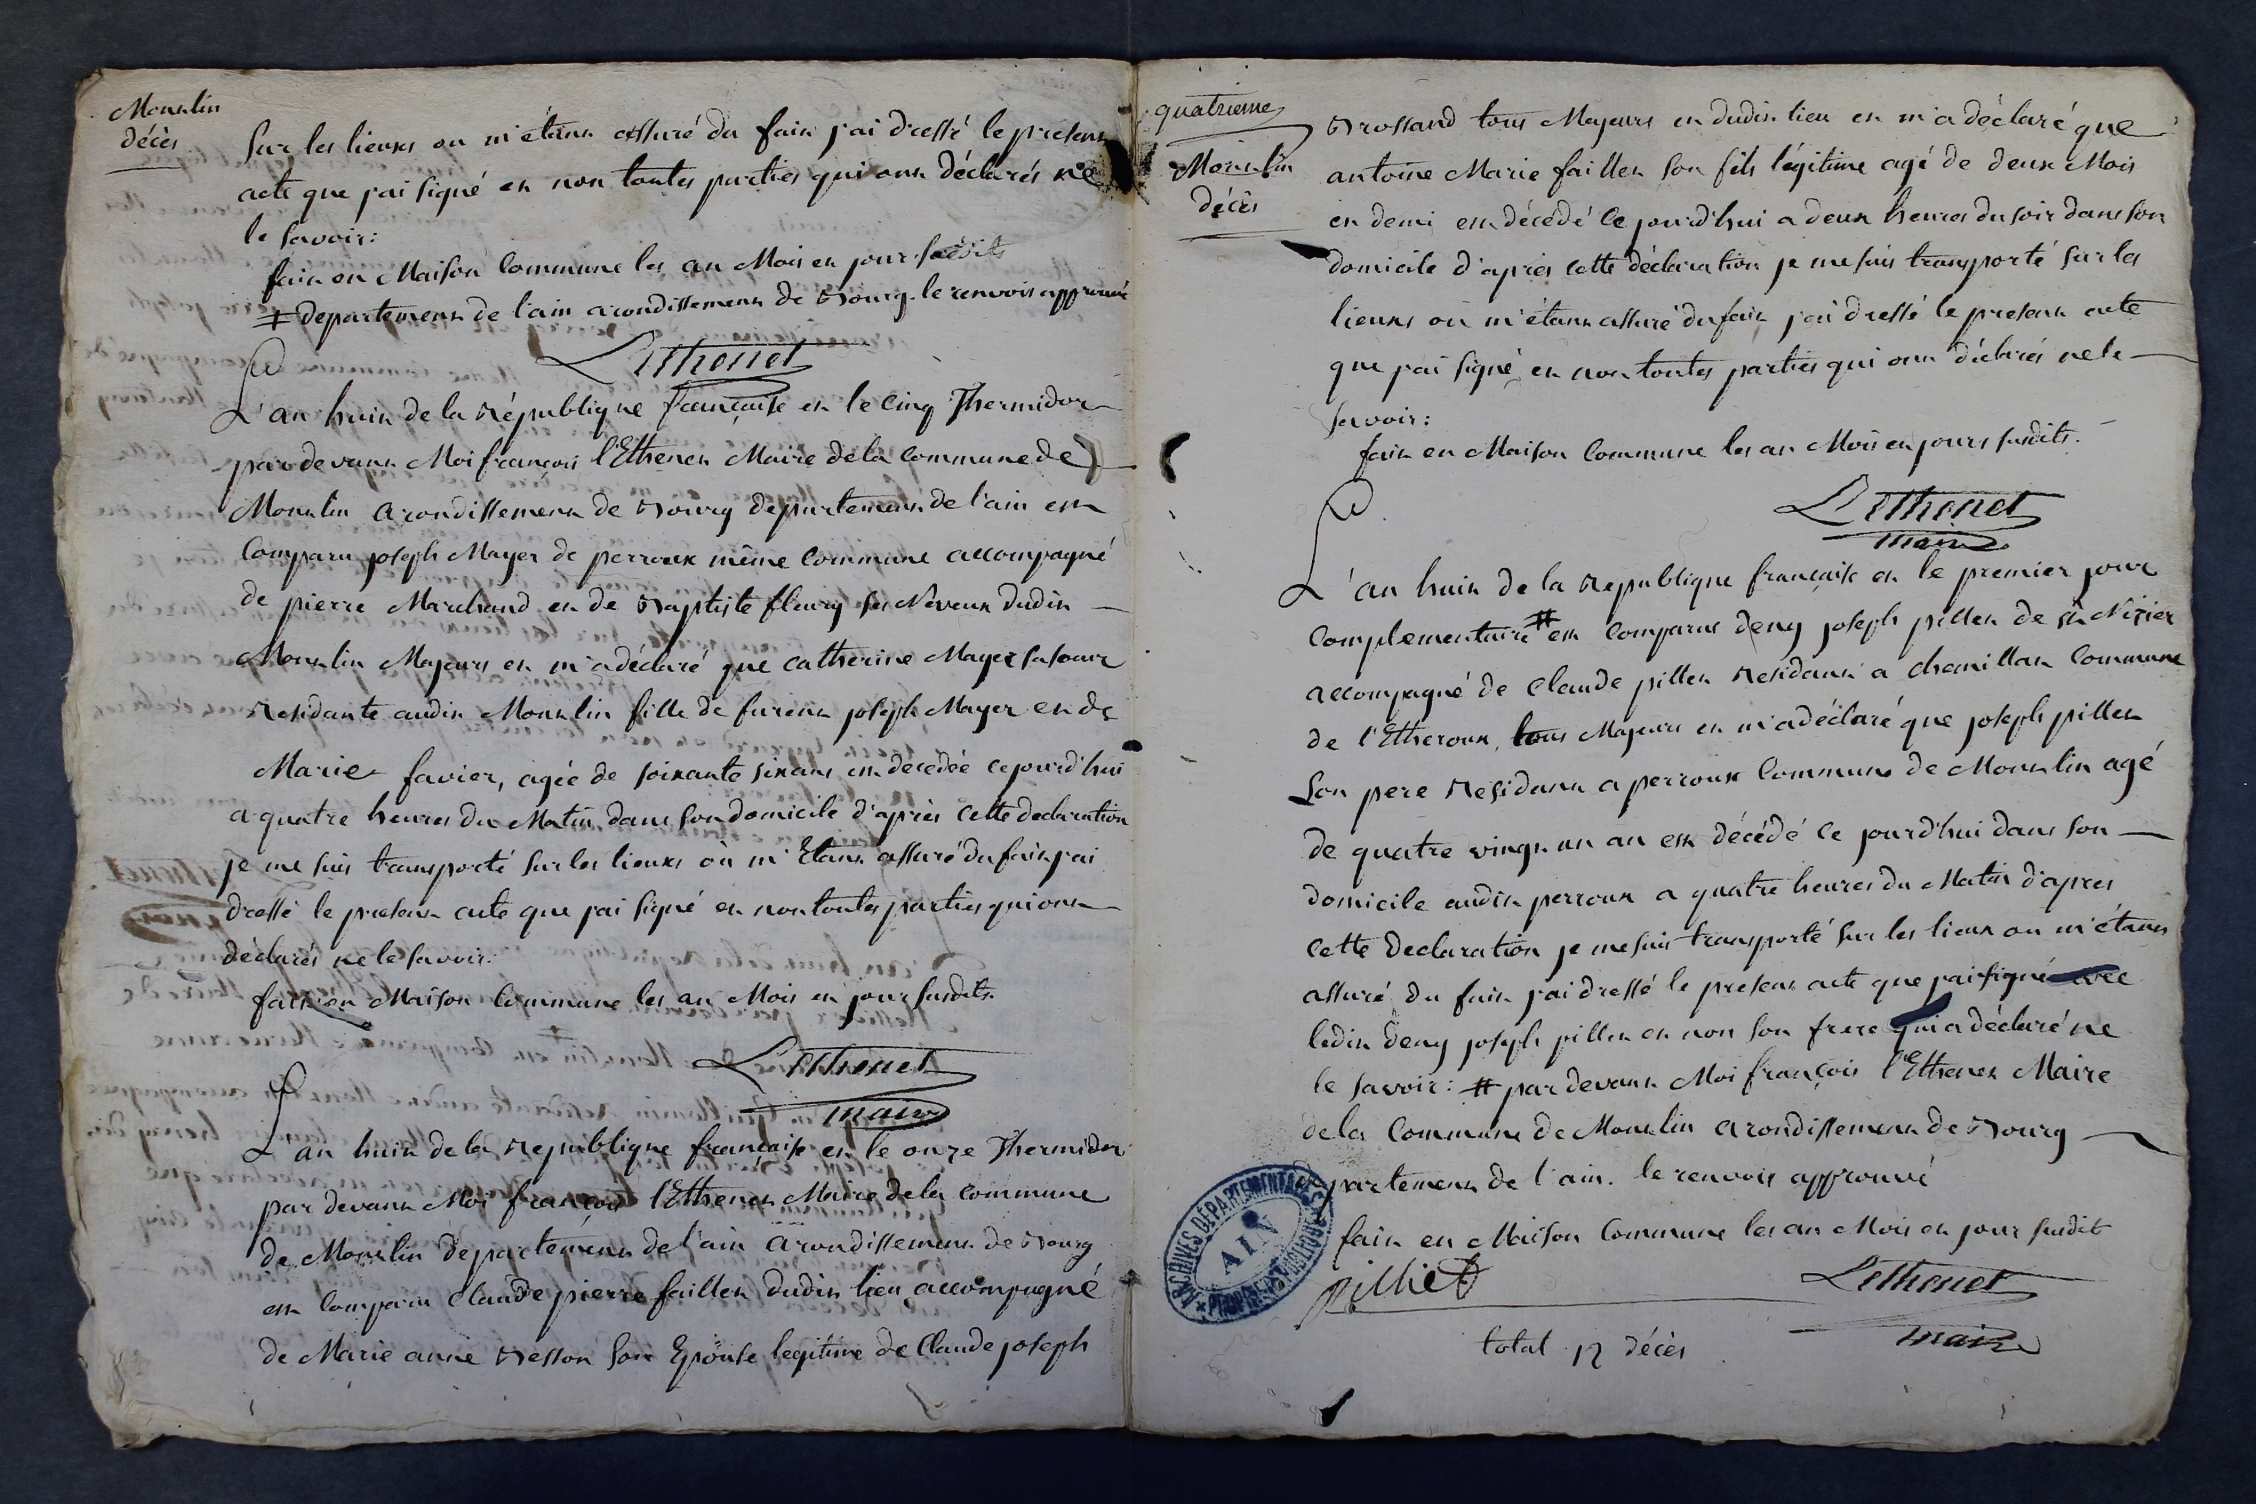 Montlin
décès
Sur les lieux ou m'étant assuré du fait j'ai dressé le present
acte que j'ai signé et non toutes parties qui ont déclarés ne
le savoir:
fait en Maison Commune les an Mois et jour susdits
‡ departement de l'ain arondissement de Bourg. le renvois approuvé
LEthenet
L'an huit de la République française et le cinq Thermidor
par devant Moi françois l'Ethenet Maire de la Commune de
Montlin arondissement de Bourg departement de l'ain est
Comparu joseph Mayer de perroux même Commune accompagné
de pierre Marchand et de Baptiste fleury ses Neveux dudit
Montlin Majeurs et m'a déclaré que catherine Mayer sa soeur
Residante audit Montlin fille de furent joseph Mayer et de
Marie favier, agée de soixante six ans est decedée ce jourd'hui
a quatre heures du Matin dans son domicile d'après cette declaration
je me suis transporté sur les lieux où m'Etant assuré du fait j'ai
dressé le present acte que j'ai signé et non toutes parties qui ont
déclarés ne le savoir:
fait en Maison Commune les an Mois et jour susdits
LEthenet
maire
L'an huit de la Republique française et le onze Thermidor
par devant Moi françois l'Ethenet Maire de la Commune
de Montlin departement de l'ain arondissement de Bourg
est Comparu Claude pierre faillet dudit lieu accompagné
de Marie anne Besson son Epouse legitime de Claude joseph
quatrieme
Montlin
décès
Brossand tous Majeurs et dudit lieu et m'a déclaré que
antoine Marie faillet son fils légitime agé de deux Mois
et demi est décédé ce jourd'hui a deux heures du soir dans son
domicile d'après cette déclaration je me suis transporté sur les
lieux où m'étant assuré du fait j'ai dressé le present acte
que j'ai signé et non toutes parties qui ont déclarés ne le
savoir:
fait en Maison Commune les an Mois et jours susdits.
LEthenet
maire
L'an huit de la Republique française et le premier jour
Complementaire # est Comparus deny joseph pillet de st Nizier
accompagné de Claude pillet Residant a chemillat Commune
de l'Etheroux, tous Majeurs et m'a déclaré que joseph pillet
son pere Residant a perroux Commune de Montlin agé
de quatre vingt un an est décédé ce jourd'hui dans son
domicile audit perroux a quatre heures du Matin d'apres
cette declaration je me suis transporté sur les lieux ou m'étant
assuré du fait j'ai dressé le present acte que j'ai signé avec
ledit deny joseph pillet et non son frere qui a déclaré ne
le savoir: # par devant Moi françois l'Ethenet Maire
de la Commune de Montlin arondissement de Bourg
partement de l'ain. le renvois approuvé
fait en Maison Commune les an Mois et jour susdit
pilliet
LEthenet
maire
total 12 décès
ARCHIVES DÉPARTEMENTALES
AIN
PROPRIÉTÉ PUBLIQUE